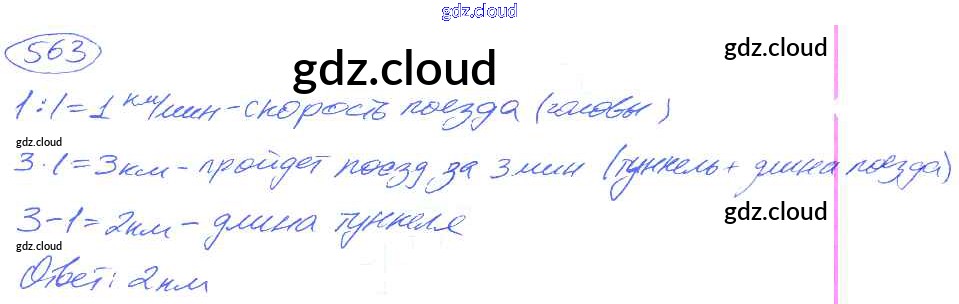 gdz.cloud
563
gdz.cloud
gdz.cloud
1:1=1 км/мин - скорость поезда (головы)
gdz.cloud
3·1=3км - пройдет поезд за 3 мин (туннель + длина поезда)
3-1=2км - длина туннеля
gdz.cloud
gdz.cloud
Ответ: 2км